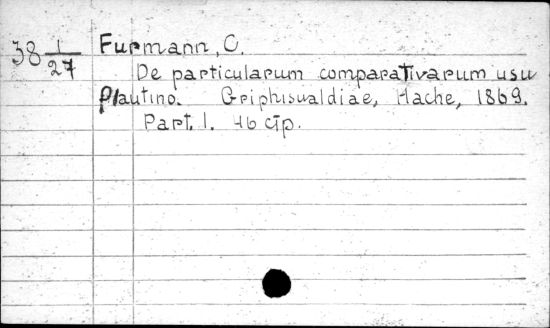 38 1/27 Furmann, C.
De particularum comparativarum usu
Plautino. Griphiswaldiae, Hache, 1869.
Part. 1. 46 стр.